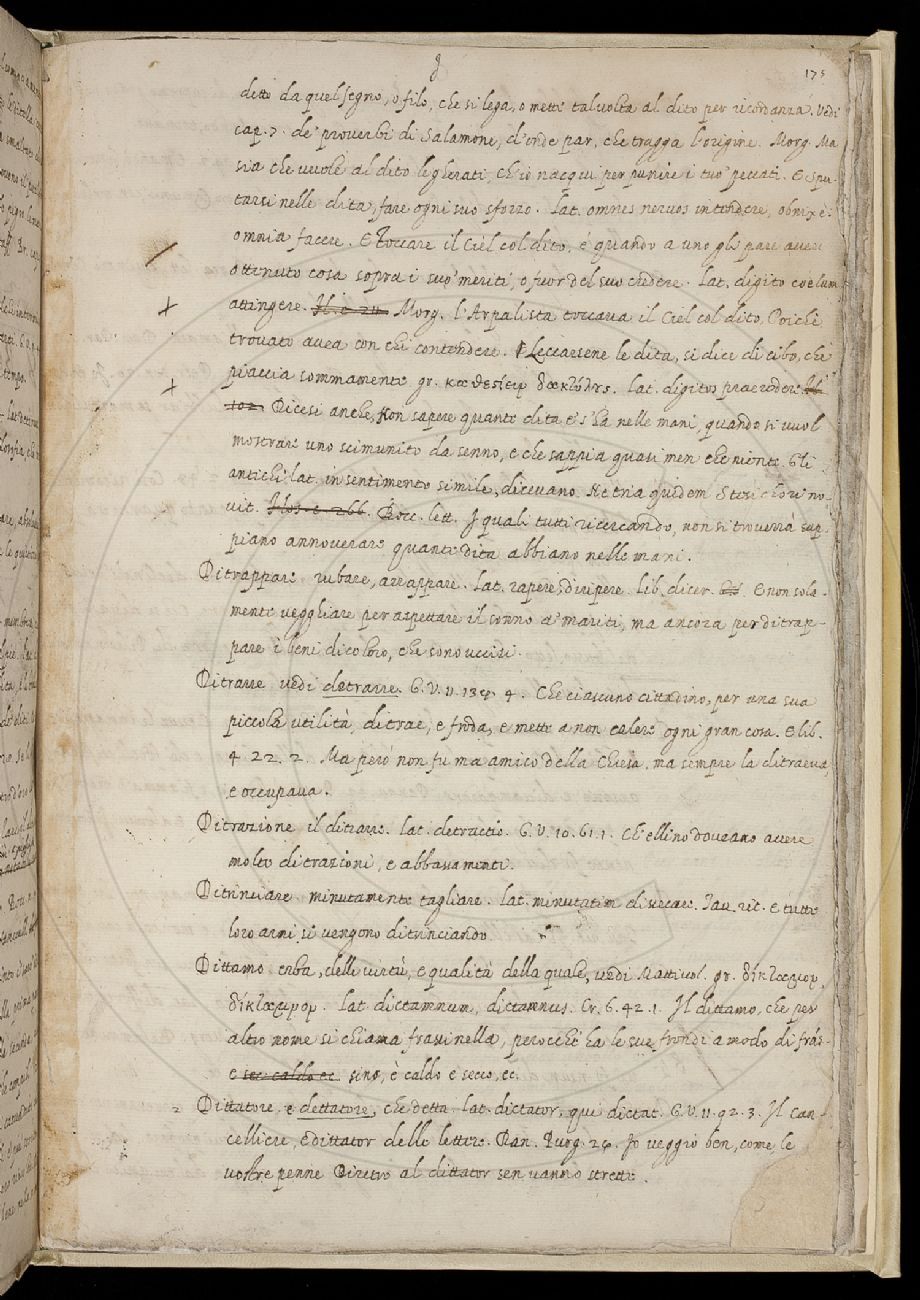 d
175
detto da quel segno, o filo, che si lega, o mette talvolta al dito per ricordanza. Vedi
cap. 7. de' proverbi di Salamone, d'onde par, che tragga l'origine. Morg. Ma
sia che vuole al dito legherati, ch'io nacqui per punire i tuo' peccati. E Spu-
tarsi nelle dita, fare ogni suo sforzo. lat. omnes nervos intendere,
omnia facere. E Toccare il Ciel col dito, è quando a uno gli pare aver
ottenuto cosa sopra i suo' meriti, o fuor del suo credere. lat. digito coelum
attingere. Il. c. 24. Morg. l'Arpalista toccava il Ciel col dito, Poichè
trovato avea con chi contendere. E Leccarsene le dita, si dice di cibo, che
piaccia sommamente gr. lat. digitos praerodere. Il.
102. Dicesi anche, Non sapere quante dita e' s'ha nelle mani, quando si vuol
mostrare uno scimunito da senno, e che sappia quasi men che niente. Gli
antichi lat. in sentimento simile, dicevano. Ne tria quidem Stesichori no-
vit. Flos. c. 266. Bocc. lett. I quali tutti ricercando, non si troverrà sap-
piano annoverare quante dita abbiano nelle mani.
Ditrappare rubare, arrappare. lat. rapere, diripere. lib. dicer. E non sola-
mente vegghiare per aspettare il sonno a' mariti, ma ancora per ditrap-
pare i beni di coloro, che sono uccisi.
Ditrarre vedi detrarre. G. V. 11. 134. 4. Che ciascuno cittadino, per una sua
piccola utilità, ditrae, e froda, e mette a non calere ogni gran cosa. E lib.
4. 22. 2. Ma però non fu ma amico della Chiesa, ma sempre la ditraeva,
e occupava.
Ditrazione il ditrarre. lat. detractio. G. V. 10. 61. 1. Ch'ellino doveano avere
molte ditrazioni, e abbassamenti.
Ditrinciare minutamente tagliare. lat. minutatim disecare. Tav. rit. E tutte
loro armi si vengono ditrinciando.
Dittamo erba, delle virtù, e qualità della quale, vedi Mattiuol. gr. δίκταμον,
δίκταμνον. lat. dictamnum, dictamnus. Cr. 6. 42. 1. Il dittamo, che per
altro nome si chiama frassinella, perocchè ha le sue frondi a modo di fràs-
e sec. caldo ec. sino, è caldo e secco, ec.
Dittatore, e dettatore, che detta. lat. dictator, qui dictat. G. V. 11. 92. 3. Il Can-
celliere, e dittator delle lettere. Dan. Purg. 24. Io veggio ben, come le
vostre penne Diretro al dittator sen vanno strette.